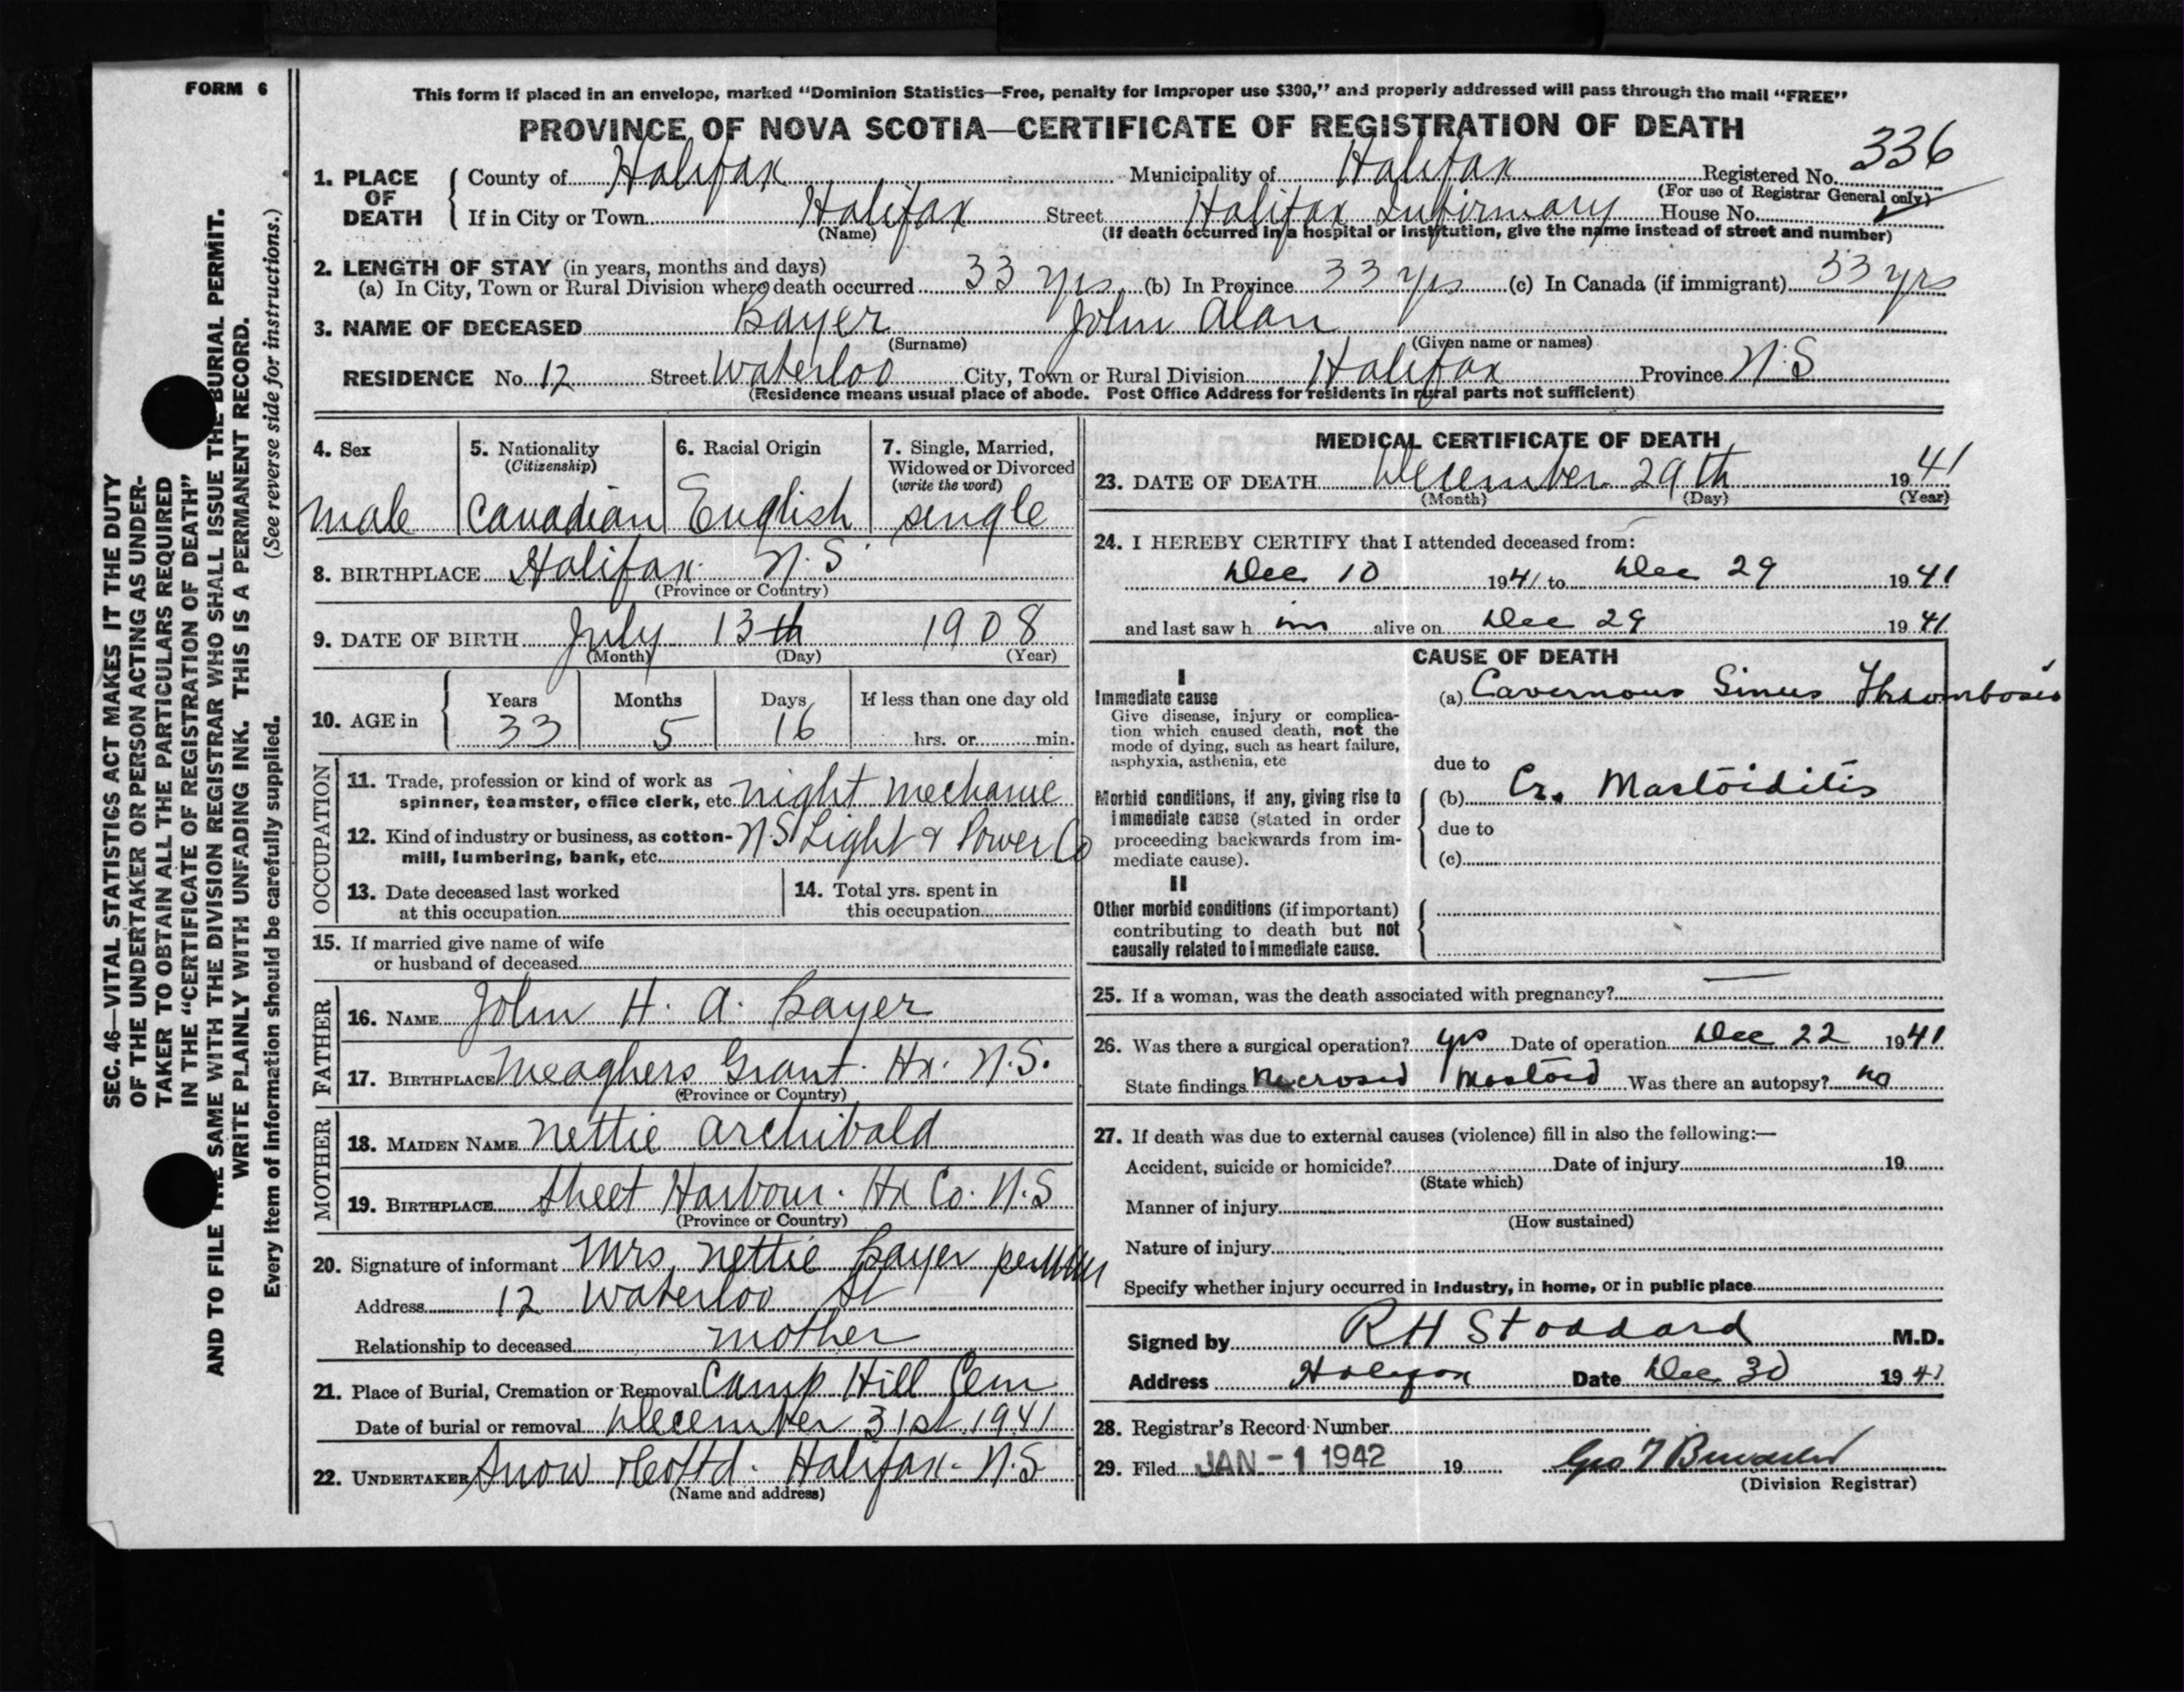 FORM 6
This form if placed in an envelope, marked “Dominion Statistics—Free, penalty for improper use $300,” and properly addressed will pass through the mail “FREE”
PROVINCE OF NOVA SCOTIA—CERTIFICATE OF REGISTRATION OF DEATH
336
1. PLACE OF DEATH
County of Halifax Municipality of Halifax Registered No.
(For use of Registrar General only)
If in City or Town Halifax Street Halifax Infirmary House No.
(Name) (If death occurred in a hospital or institution, give the name instead of street and number)
2. LENGTH OF STAY (in years, months and days)
(a) In City, Town or Rural Division where death occurred 33 yrs (b) In Province 33 yrs (c) In Canada (if immigrant) 33 yrs
3. NAME OF DECEASED Bayer John Alan
(Surname) (Given name or names)
RESIDENCE No. 12 Street Waterloo City, Town or Rural Division Halifax Province N.S
(Residence means usual place of abode. Post Office Address for residents in rural parts not sufficient)
4. Sex
male
5. Nationality
(Citizenship)
Canadian
6. Racial Origin
English
7. Single, Married,
Widowed or Divorced
(write the word)
single
8. BIRTHPLACE Halifax. N.S
(Province or Country)
9. DATE OF BIRTH July 13th 1908
(Month) (Day) (Year)
10. AGE in
Years Months Days If less than one day old
33 5 16 hrs. or min.
OCCUPATION
11. Trade, profession or kind of work as
spinner, teamster, office clerk, etc. night mechanic
12. Kind of industry or business, as cotton-
mill, lumbering, bank, etc. N.S Light & Power Co
13. Date deceased last worked
at this occupation
14. Total yrs. spent in
this occupation
15. If married give name of wife
or husband of deceased
FATHER
16. NAME John H. A. Bayer
17. BIRTHPLACE Meaghers Grant. Hx. N.S.
(Province or Country)
MOTHER
18. MAIDEN NAME Nettie Archibald
19. BIRTHPLACE Sheet Harbour. Hx Co. N.S
(Province or Country)
20. Signature of informant Mrs Nettie Bayer per
Address 12 Waterloo St
Relationship to deceased mother
21. Place of Burial, Cremation or Removal Camp Hill Cem
Date of burial or removal December 31st 1941
22. UNDERTAKER Snow & Co Ltd. Halifax. N.S
(Name and address)
MEDICAL CERTIFICATE OF DEATH
23. DATE OF DEATH December 29th 1941
(Month) (Day) (Year)
24. I HEREBY CERTIFY that I attended deceased from:
Dec 10 1941 to Dec 29 1941
and last saw h im alive on Dec 29 1941
CAUSE OF DEATH
I
Immediate cause
Give disease, injury or complica-
tion which caused death, not the
mode of dying, such as heart failure,
asphyxia, asthenia, etc
(a) Cavernous Sinus Thrombosis
due to
Morbid conditions, if any, giving rise to
immediate cause (stated in order
proceeding backwards from im-
mediate cause).
(b) Cr. Mastoiditis
due to
(c)
II
Other morbid conditions (if important)
contributing to death but not
causally related to immediate cause.
25. If a woman, was the death associated with pregnancy? —
26. Was there a surgical operation? yes Date of operation Dec 22 1941
State findings Necrosed Mastoid Was there an autopsy? no
27. If death was due to external causes (violence) fill in also the following:—
Accident, suicide or homicide? Date of injury 19
(State which)
Manner of injury
(How sustained)
Nature of injury
Specify whether injury occurred in industry, in home, or in public place
Signed by R H Stoddard M.D.
Address Halifax Date Dec 30 1941
28. Registrar's Record Number
29. Filed JAN - 1 1942 19
(Division Registrar)
SEC. 46—VITAL STATISTICS ACT MAKES IT THE DUTY
OF THE UNDERTAKER OR PERSON ACTING AS UNDER-
TAKER TO OBTAIN ALL THE PARTICULARS REQUIRED
IN THE “CERTIFICATE OF REGISTRATION OF DEATH”
AND TO FILE THE SAME WITH THE DIVISION REGISTRAR WHO SHALL ISSUE THE BURIAL PERMIT.
WRITE PLAINLY WITH UNFADING INK. THIS IS A PERMANENT RECORD.
Every item of information should be carefully supplied. (See reverse side for instructions.)